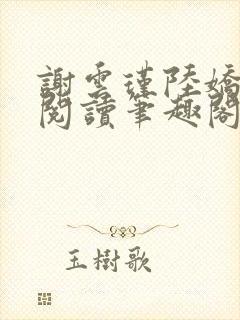 謝雲瑾陸嬌
閱讀筆趣閣
玉樹歌